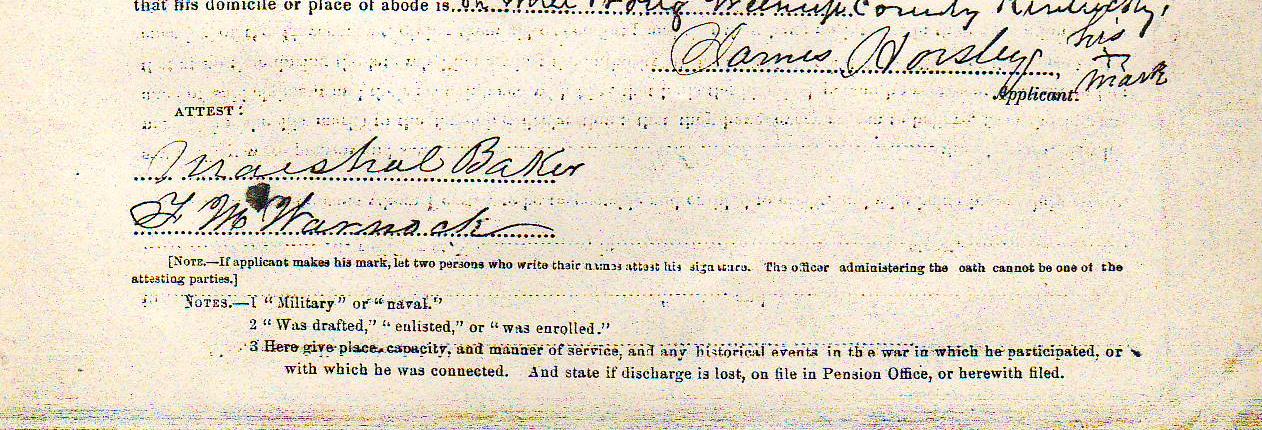 that his domicile or place of abode is on Three Prong Greenup County Kentucky,
James Horsley, his
x
Applicant. mark
ATTEST:
Marshal Baker
F M Warnock
[NOTE.—If applicant makes his mark, let two persons who write their names attest his signature. The officer administering the oath cannot be one of the
attesting parties.]
NOTES.—1 "Military" or "naval."
2 "Was drafted," "enlisted," or "was enrolled."
3 Here give place, capacity, and manner of service, and any historical events in the war in which he participated, or
with which he was connected. And state if discharge is lost, on file in Pension Office, or herewith filed.